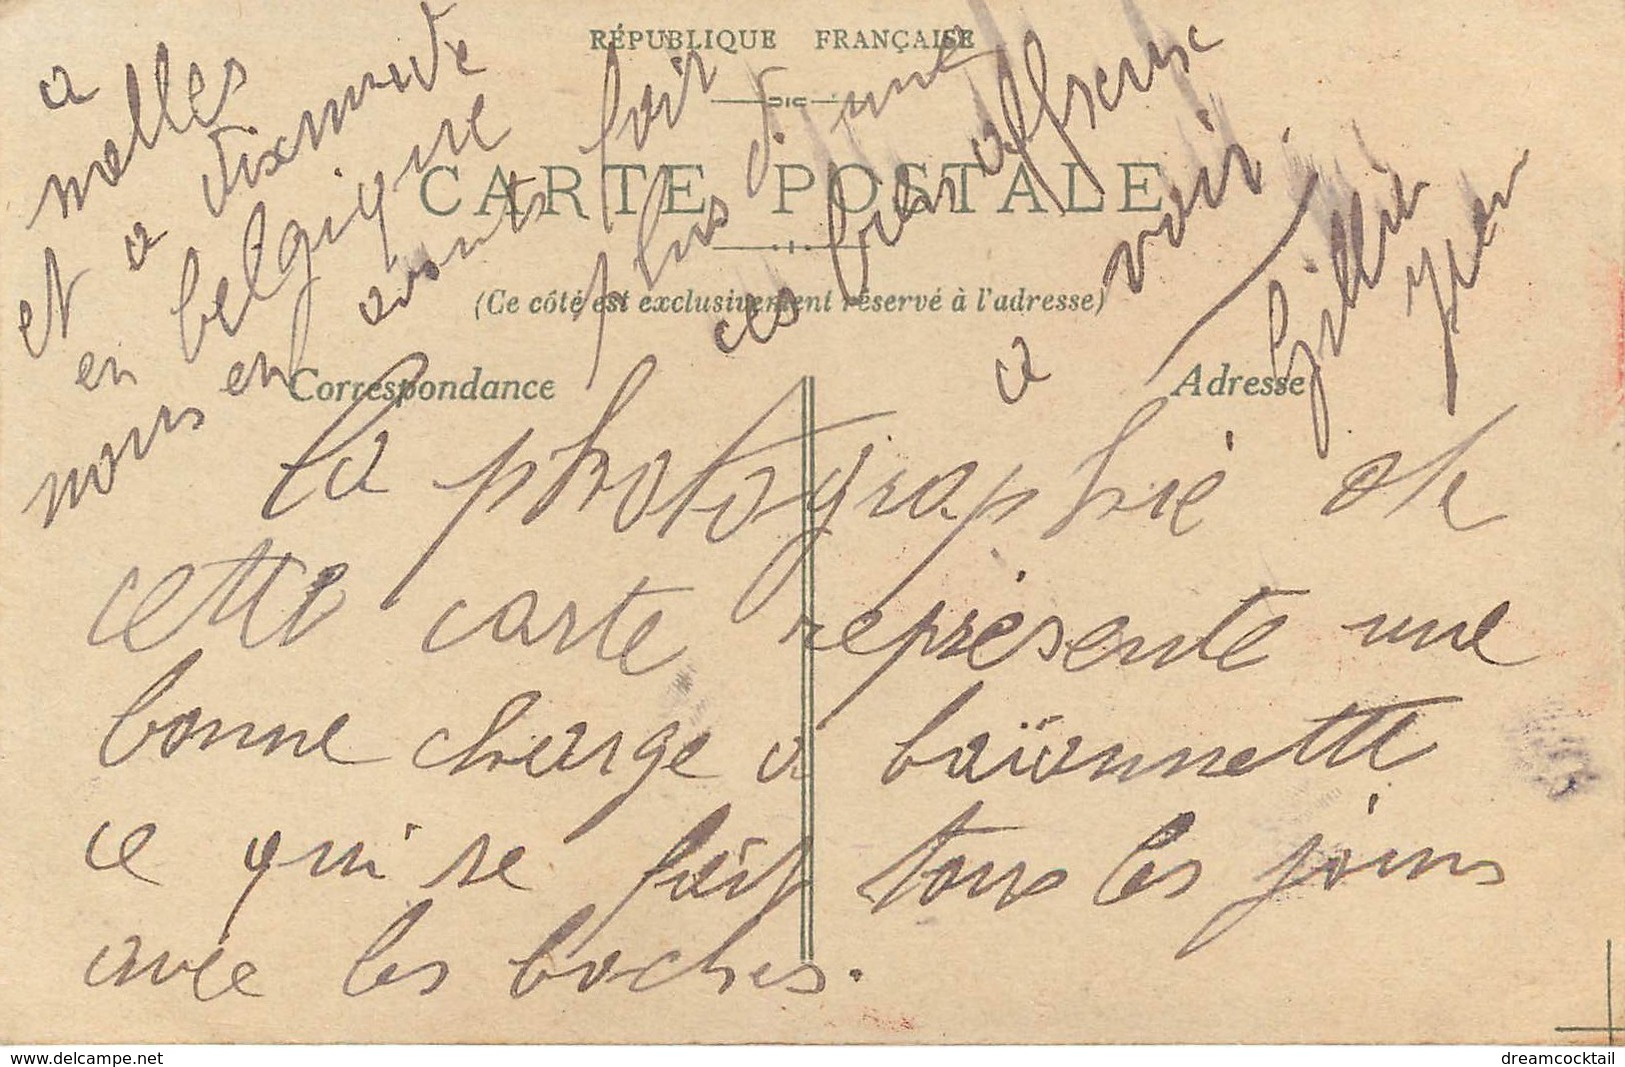 RÉPUBLIQUE FRANÇAISE
CARTE POSTALE
(Ce côté est exclusivement réservé à l'adresse)
Correspondance
Adresse
La photographie de
cette carte représente une
bonne charge a baïonnette
ce qui se fait tous les jours
avec les boches.
a
melles
et a dixmude
en belgique
nous en avonts fait
plus d'une
ces bien affreux
a voir.
Gillier
www.delcampe.net
dreamcocktail